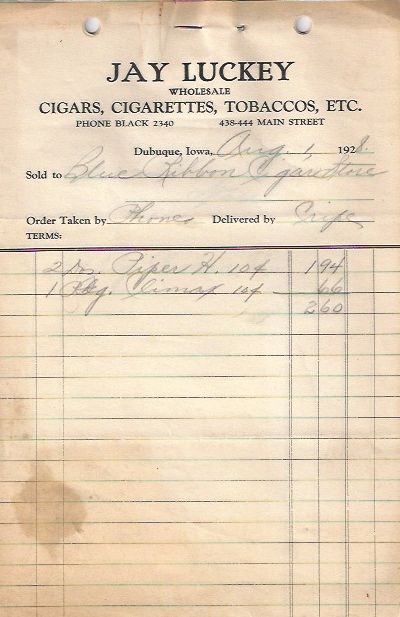 JAY LUCKEY
WHOLESALE
CIGARS, CIGARETTES, TOBACCOS, ETC.
PHONE BLACK 2340 438-444 MAIN STREET
Dubuque, Iowa, Aug. 1, 1928.
Sold to Blue Ribbon Cigar Store
Order Taken by Phone Delivered by Cripe
TERMS:
2 Dz. Piper H. 10¢ 194
1 Pkg. Climax 10¢ 66
260